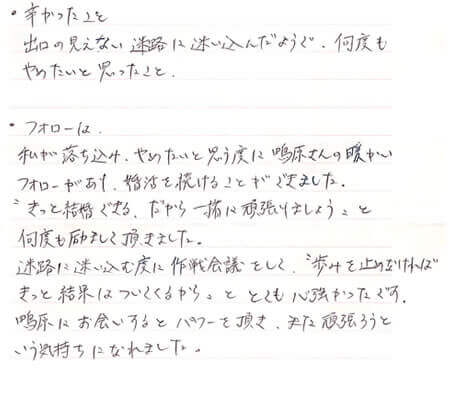 ・辛かったこと
出口の見えない迷路に迷い込んだようで、何度も
やめたいと思ったこと。
・フォローは、
私が落ち込み、やめたいと思う度に鳴原さんの暖かい
フォローがあり、婚活を続けることができました。
"きっと結婚できる、だから一緒に頑張りましょう"と
何度も励まして頂きました。
迷路に迷い込む度に作戦会議をして、"歩みを止めなければ
きっと結果はついてくるから"と とても心強かったです。
鳴原にお会いするとパワーを頂き、また頑張ろうと
いう気持ちになれました。